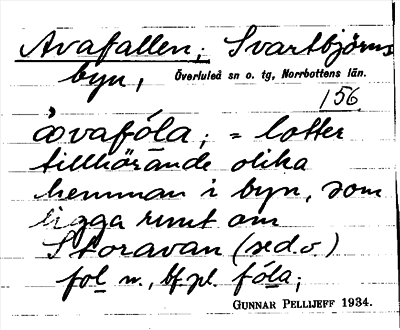 Avafallen; Svartbjörns
byn, Överluleå sn o. tg, Norrbottens län.
156.
åvafóla; = lotter
tillhörande olika
hemman i byn, som
ligga runt om
Storavan (sed.o.)
fol n., bf.pl. fóla;
GUNNAR PELLIJEFF 1934.